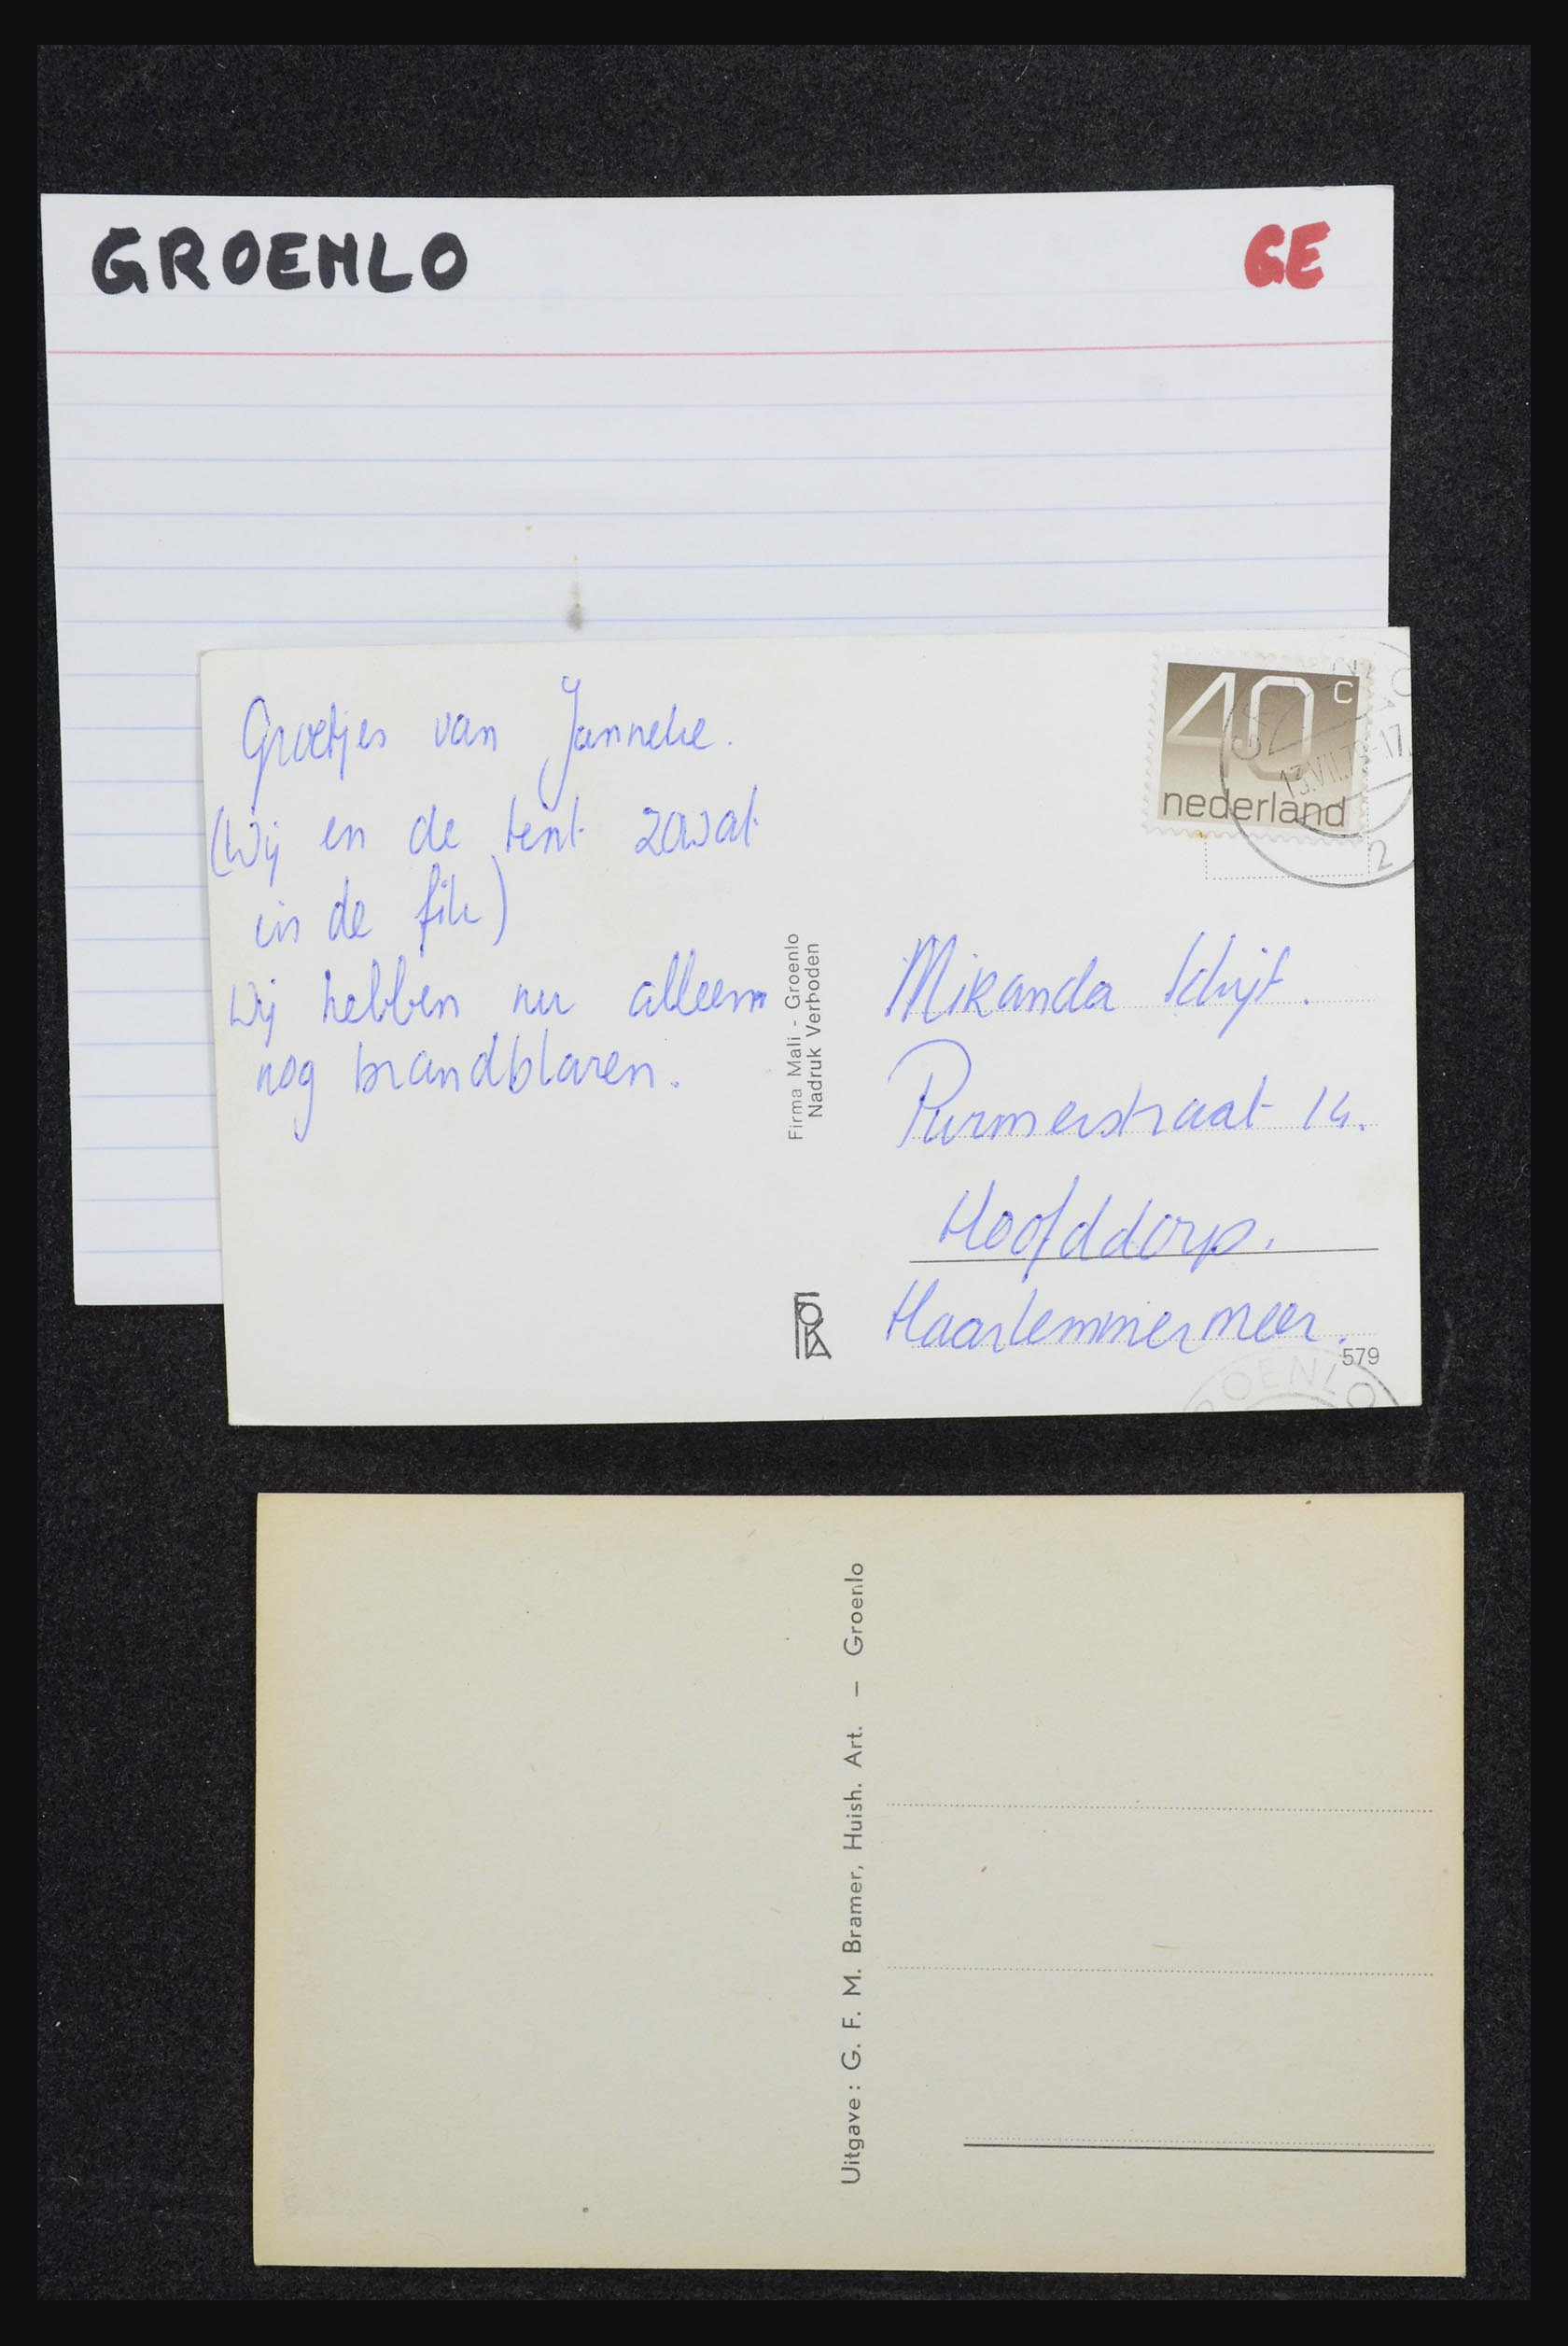 GROENLO
GE
Groetjes van Janneke.
(Wij en de tent zowat
in de fik)
Wij hebben nu alleen
nog brandblaren.
Firma Mali - Groenlo
Nadruk Verboden
FOKA
40 c
nederland
13.VII.7 -17.
2
Miranda Schijf.
Purmerstraat 14.
Hoofddorp.
Haarlemmermeer.
579
ROENLO
Uitgave: G. F. M. Bramer, Huish. Art. – Groenlo